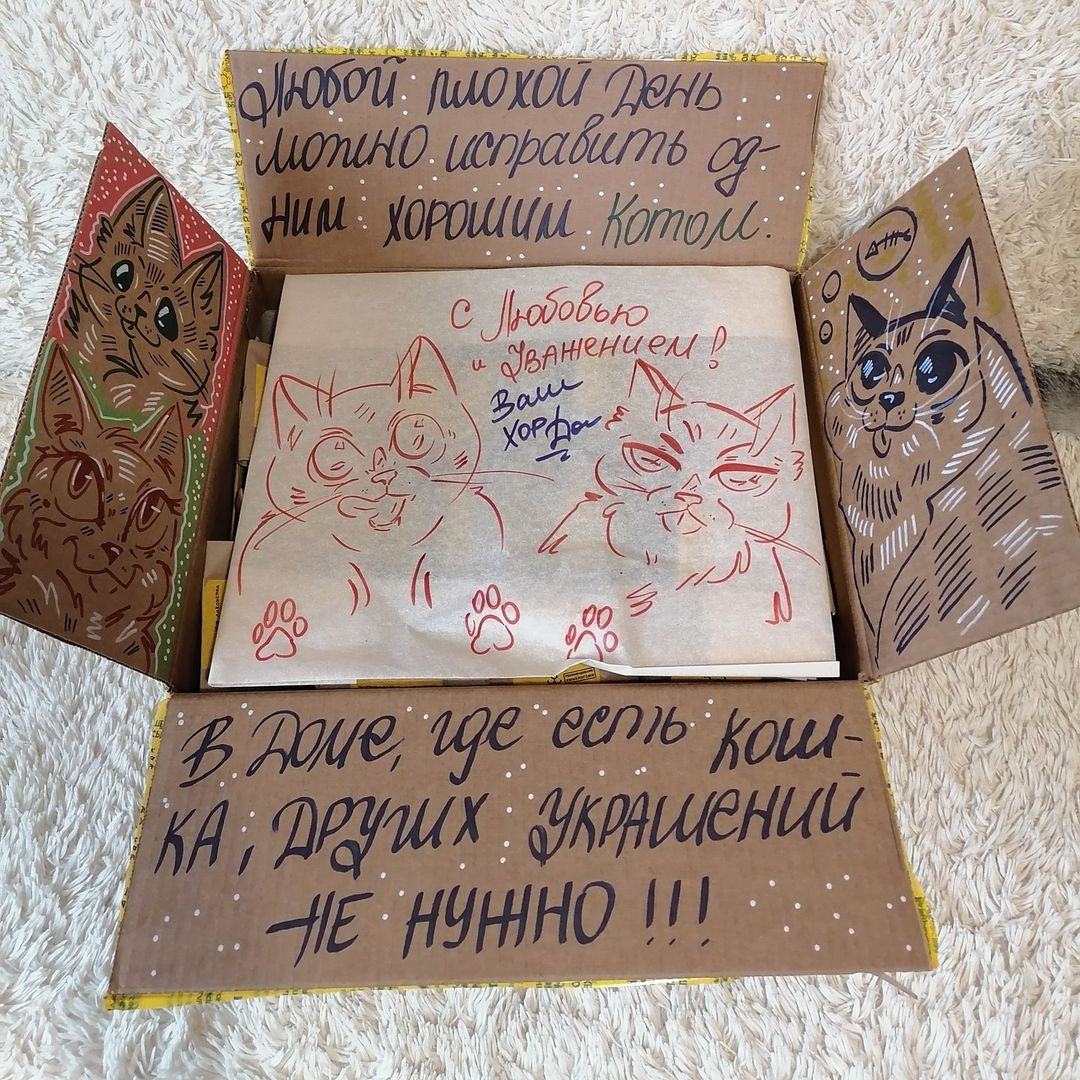 Любой плохой День
можно исправить од-
ним хорошим Котом.
С Любовью
и Уважением!
Ваш
ХорДог
В Доме, где есть кош-
ка, других украшений
не нужно!!!